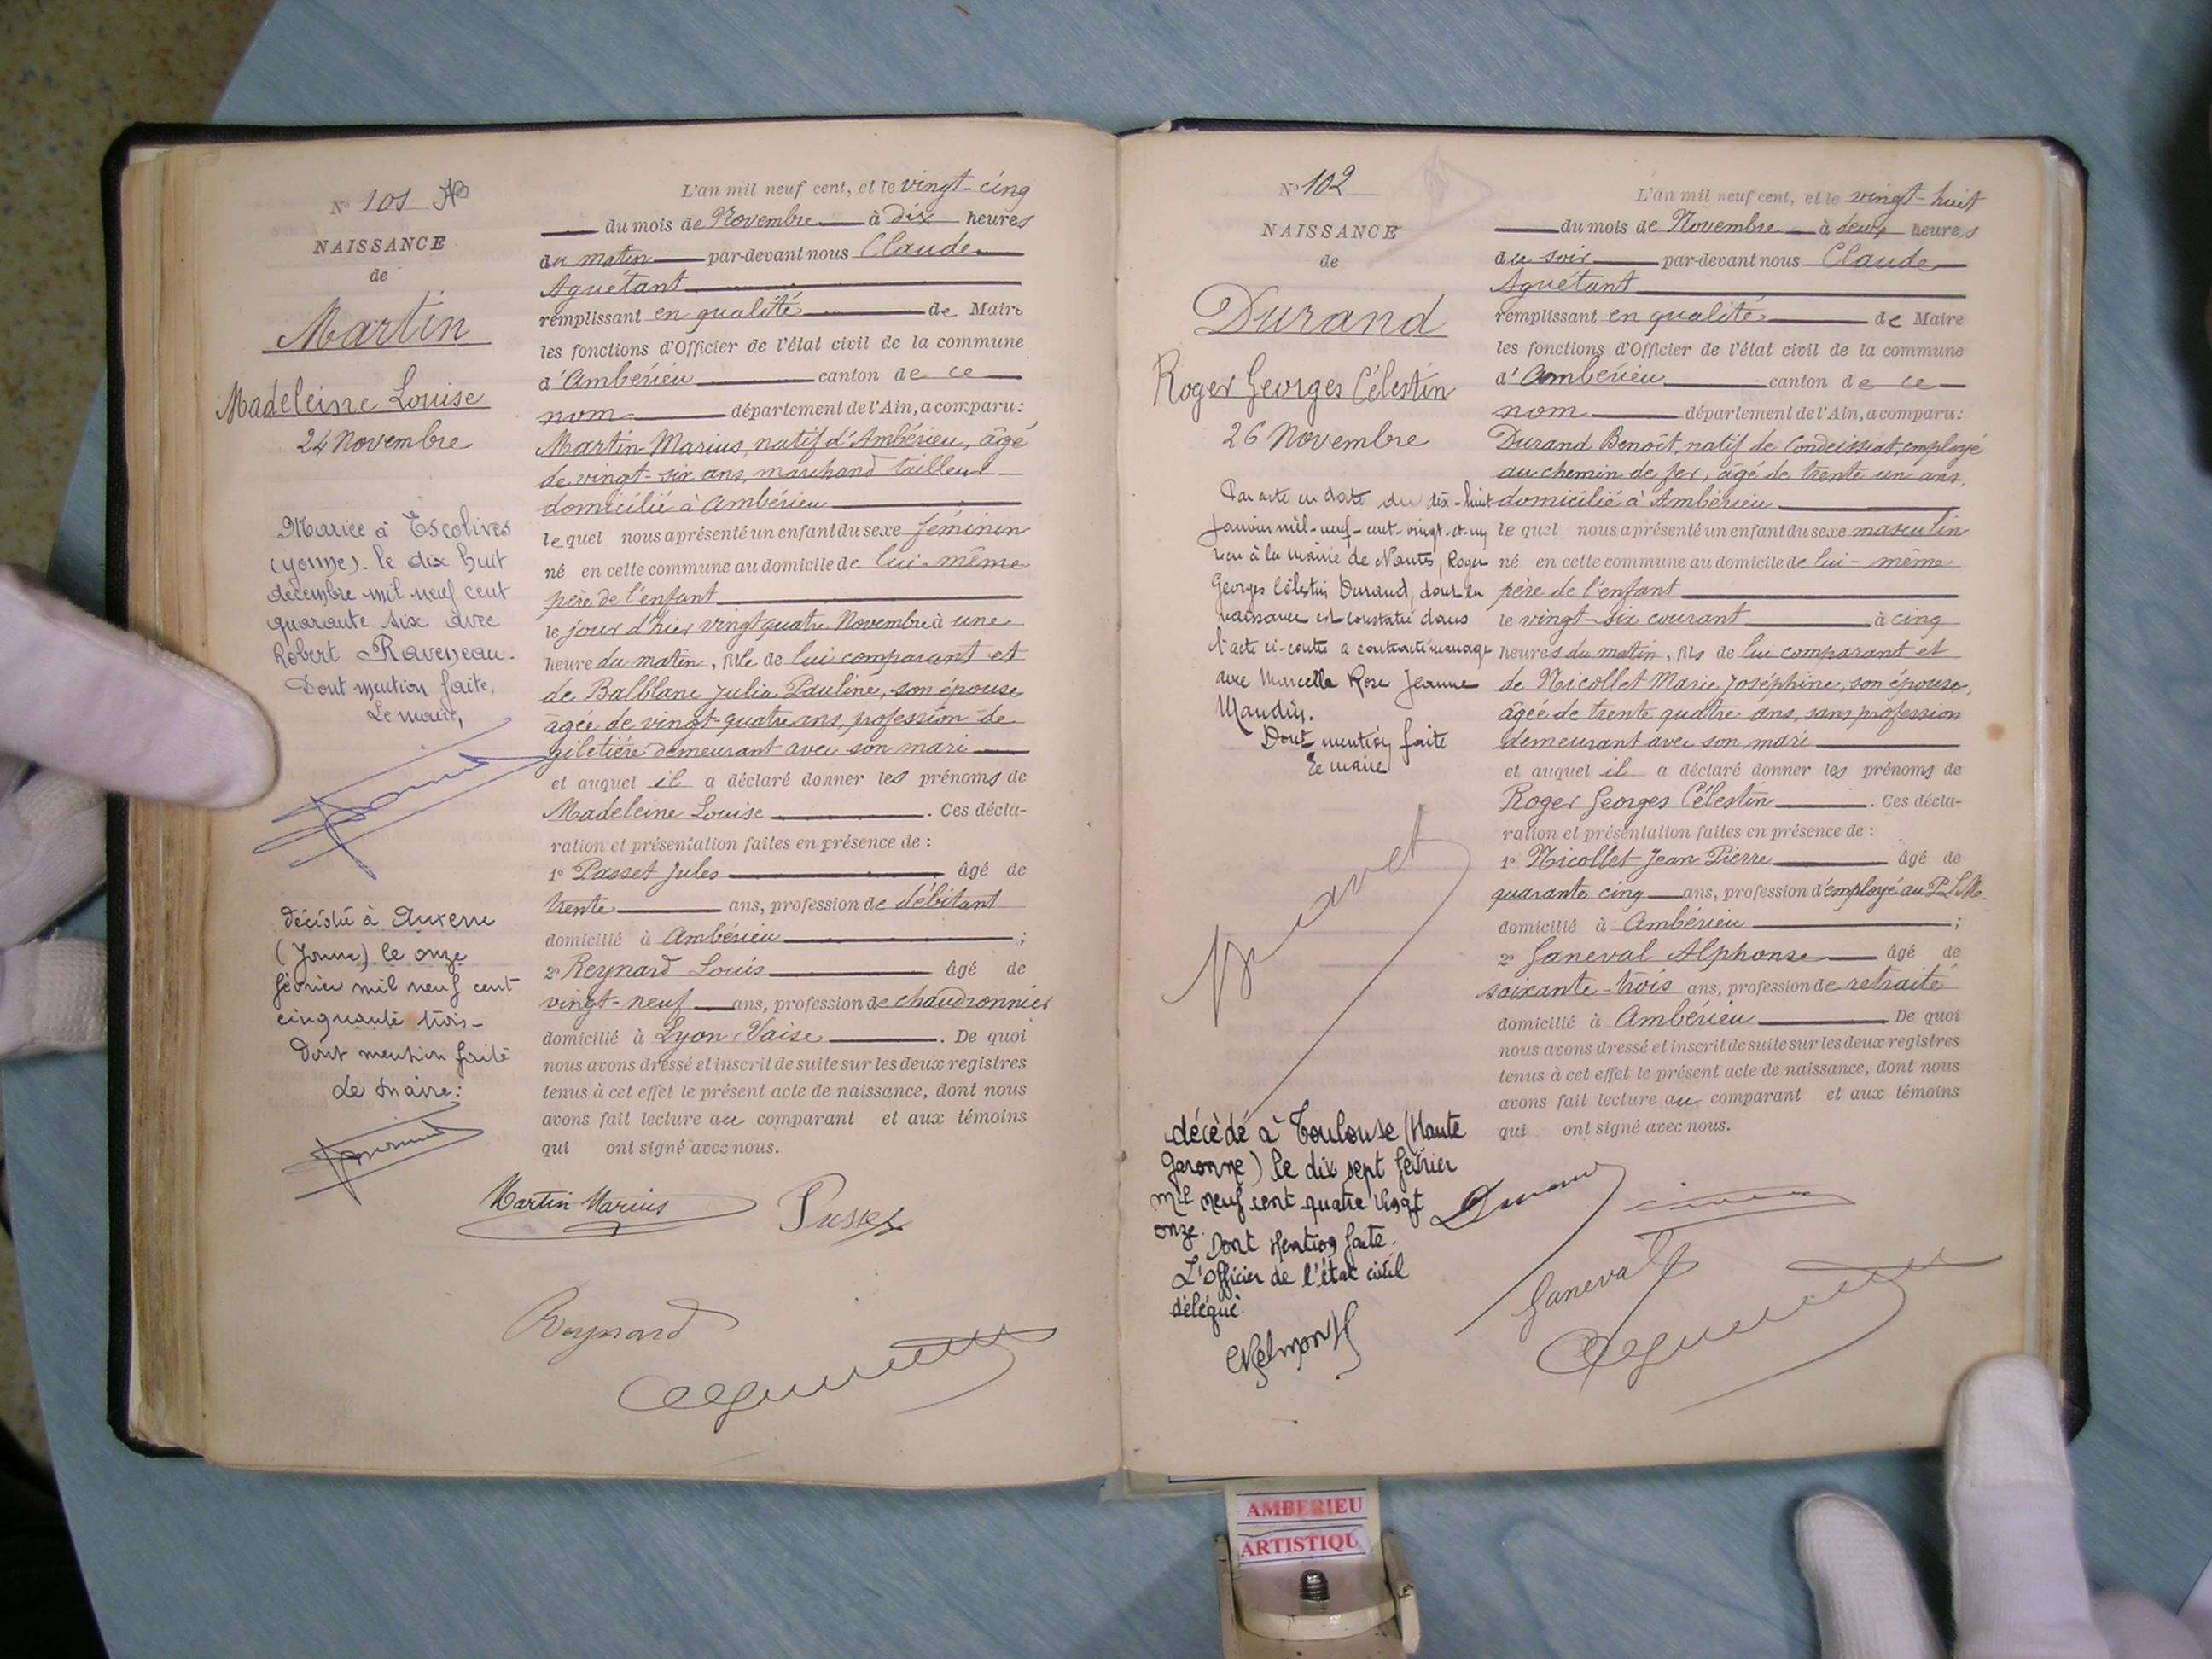 N° 101
NAISSANCE
de
Martin
Madeleine Louise
24 Novembre
Mariée à Escolives
(Yonne). le dix huit
décembre mil neuf cent
quarante six avec
Robert Raveneau.
Dont mention faite,
Le maire,
décédée à Auxerre
(Yonne) le onze
février mil neuf cent
cinquante trois-
Dont mention faite
Le Maire:
L'an mil neuf cent, et le vingt-cinq
du mois de Novembre à dix heures
du matin par-devant nous Claude
Aguétant
remplissant en qualité de Maire
les fonctions d'Officier de l'état civil de la commune
d'Ambérieu canton de ce
nom département de l'Ain, a comparu:
Martin Marius, natif d'Ambérieu, âgé
de vingt-six ans, marchand tailleur
domicilié à Ambérieu
lequel nous a présenté un enfant du sexe féminin
né en cette commune au domicile de lui-même
père de l'enfant
le jour d'hier vingt quatre Novembre à une
heure du matin, fille de lui comparant et
de Balblanc Julia Pauline, son épouse
âgée de vingt-quatre ans, profession de
giletière demeurant avec son mari
et auquel il a déclaré donner les prénoms de
Madeleine Louise. Ces décla-
ration et présentation faites en présence de :
1° Passet Jules âgé de
trente ans, profession de débitant
domicilié à Ambérieu ;
2° Reynard Louis âgé de
vingt-neuf ans, profession de chaudronnier
domicilié à Lyon Vaise. De quoi
nous avons dressé et inscrit de suite sur les deux registres
tenus à cet effet le présent acte de naissance, dont nous
avons fait lecture au comparant et aux témoins
qui ont signé avec nous.
Martin Marius Passet
Reynard
N° 102
NAISSANCE
de
Durand
Roger Georges Célestin
26 Novembre
Par acte en date du dix-huit
Janvier mil-neuf-cent-vingt-et-un
reçu à la mairie de Nantes, Roger
Georges Célestin Durand, dont la
naissance est constatée dans
l'acte ci-contre a contracté mariage
avec Marcelle Rose Jeanne
Maudin.
Dont mention faite
Le maire
décédé à Toulouse (Haute
Garonne) le dix sept février
mil neuf cent quatre vingt
onze.
Dont Mention faite.
L'Officier de l'état civil
délégué.
L'an mil neuf cent, et le vingt-huit
du mois de Novembre à deux heures
du soir par-devant nous Claude
Aguétant
remplissant en qualité de Maire
les fonctions d'Officier de l'état civil de la commune
d'Ambérieu canton de ce
nom département de l'Ain, a comparu:
Durand Benoît, natif de Condeissiat, employé
au chemin de fer, âgé de trente un ans,
domicilié à Ambérieu
lequel nous a présenté un enfant du sexe masculin
né en cette commune au domicile de lui-même
père de l'enfant
le vingt-six courant à cinq
heures du matin, fils de lui comparant et
de Nicollet Marie Joséphine, son épouse,
âgée de trente quatre ans, sans profession
demeurant avec son mari
et auquel il a déclaré donner les prénoms de
Roger Georges Célestin. Ces décla-
ration et présentation faites en présence de :
1° Nicollet Jean Pierre âgé de
quarante cinq ans, profession d'employé au P.L.M.
domicilié à Ambérieu ;
2° Ganeval Alphonse âgé de
soixante-trois ans, profession de retraité
domicilié à Ambérieu De quoi
nous avons dressé et inscrit de suite sur les deux registres
tenus à cet effet le présent acte de naissance, dont nous
avons fait lecture au comparant et aux témoins
qui ont signé avec nous.
Durand
Ganeval
AMBERIEU
ARTISTIQU